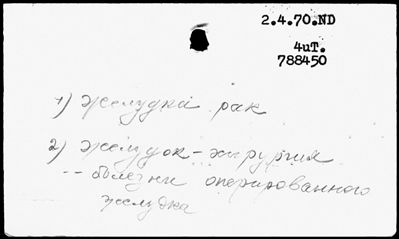 2.4.70.ND
4иТ.
788450
1) Желудка рак
2) Желудок - хирургия
-- болезни оперированного
желудка